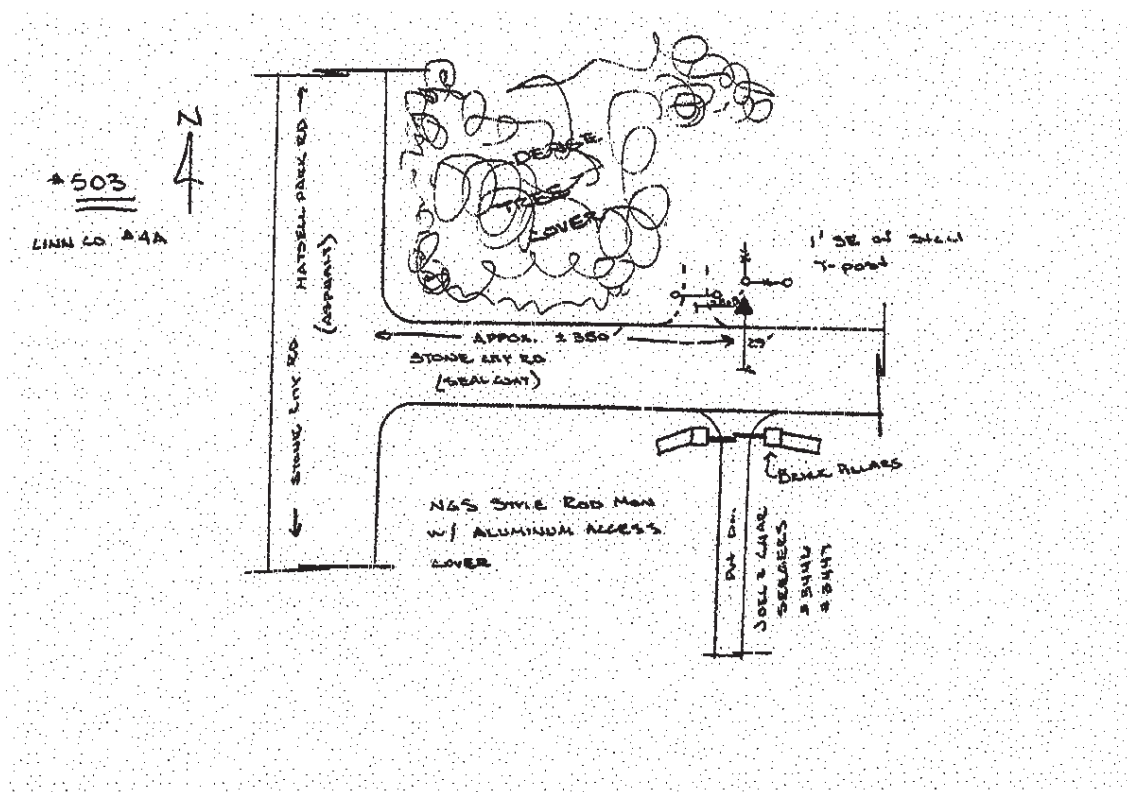 N
#503
LINN CO #4A
MATSELL PARK RD
(ASPHALT)
STONE CITY RD
DENSE
TREE
COVER
1' SE OF STEEL
T-POST
APPOX. ± 350'
29'
STONE CITY RD
(SEAL COAT)
BRICK PILLARS
NGS STYLE ROD MON
W/ ALUMINUM ACCESS
COVER
PVT DR.
JOEL & CHAR
SEEGERS
#3447